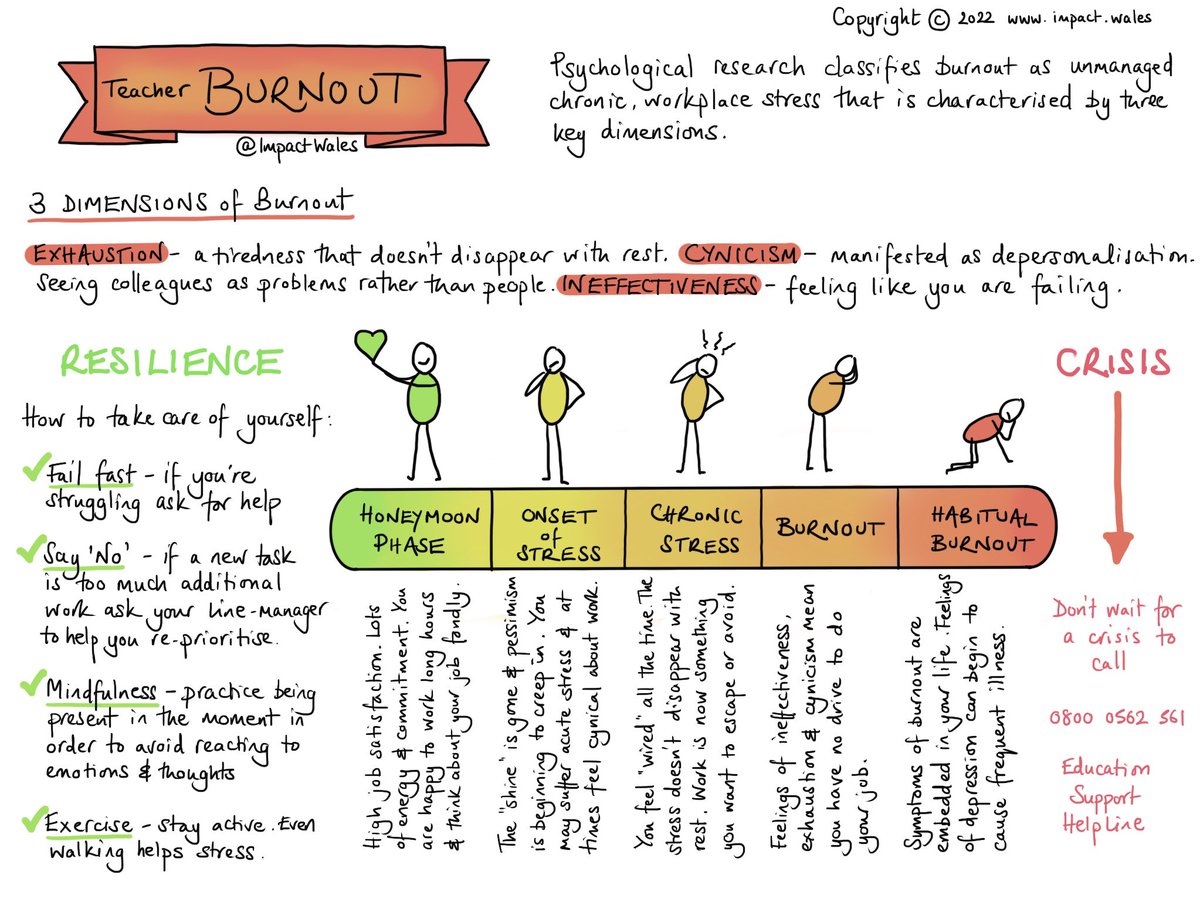 Copyright © 2022 www.impact.wales
Teacher BURNOUT
@ImpactWales
Psychological research classifies burnout as unmanaged
chronic, workplace stress that is characterised by three
key dimensions.
3 DIMENSIONS of Burnout
EXHAUSTION - a tiredness that doesn't disappear with rest. CYNICISM - manifested as depersonalisation.
Seeing colleagues as problems rather than people. INEFFECTIVENESS - feeling like you are failing.
RESILIENCE
How to take care of yourself:
Fail fast - if you're
struggling ask for help
Say 'No' - if a new task
is too much additional
work ask your line-manager
to help you re-prioritise.
Mindfulness - practice being
present in the moment in
order to avoid reacting to
emotions & thoughts
Exercise - stay active. Even
walking helps stress.
HONEYMOON
PHASE
High job satisfaction. Lots
of energy & commitment. You
are happy to work long hours
& think about your job fondly.
ONSET
of
STRESS
The "shine" is gone & pessimism
is beginning to creep in. You
may suffer acute stress & at
times feel cynical about work.
CHRONIC
STRESS
You feel "wired" all the time. The
stress doesn't disappear with
rest. Work is now something
you want to escape or avoid.
BURNOUT
Feelings of ineffectiveness,
exhaustion & cynicism mean
you have no drive to do
your job.
HABITUAL
BURNOUT
Symptoms of burnout are
embedded in your life. Feelings
of depression can begin to
cause frequent illness.
CRISIS
Don't wait for
a crisis to
call
0800 0562 561
Education
Support
Helpline